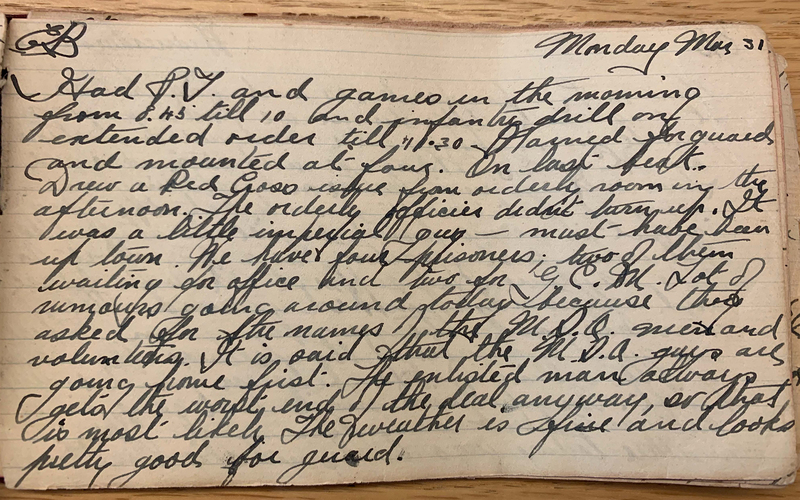 Monday Mar 31
Had P.T. and games in the morning
from 8.45 till 10 and infantry drill on
extended order till 11.30. Warned for guard
and mounted at four. On last beat.
Drew a Red Cross issue from orderly room in the
afternoon. The orderly officer didn't turn up. It
was a little imperial guy - must have been
up town. We have four prisoners; two of them
waiting for office and two for G.C.M. Lot of
rumours going around today because they
asked for the names of the M.S.A. men and
volunteers. It is said that the M.S.A. guys are
going home first. The enlisted man always
gets the worst end of the deal anyway, so that
is most likely. The weather is fine and looks
pretty good for guard.